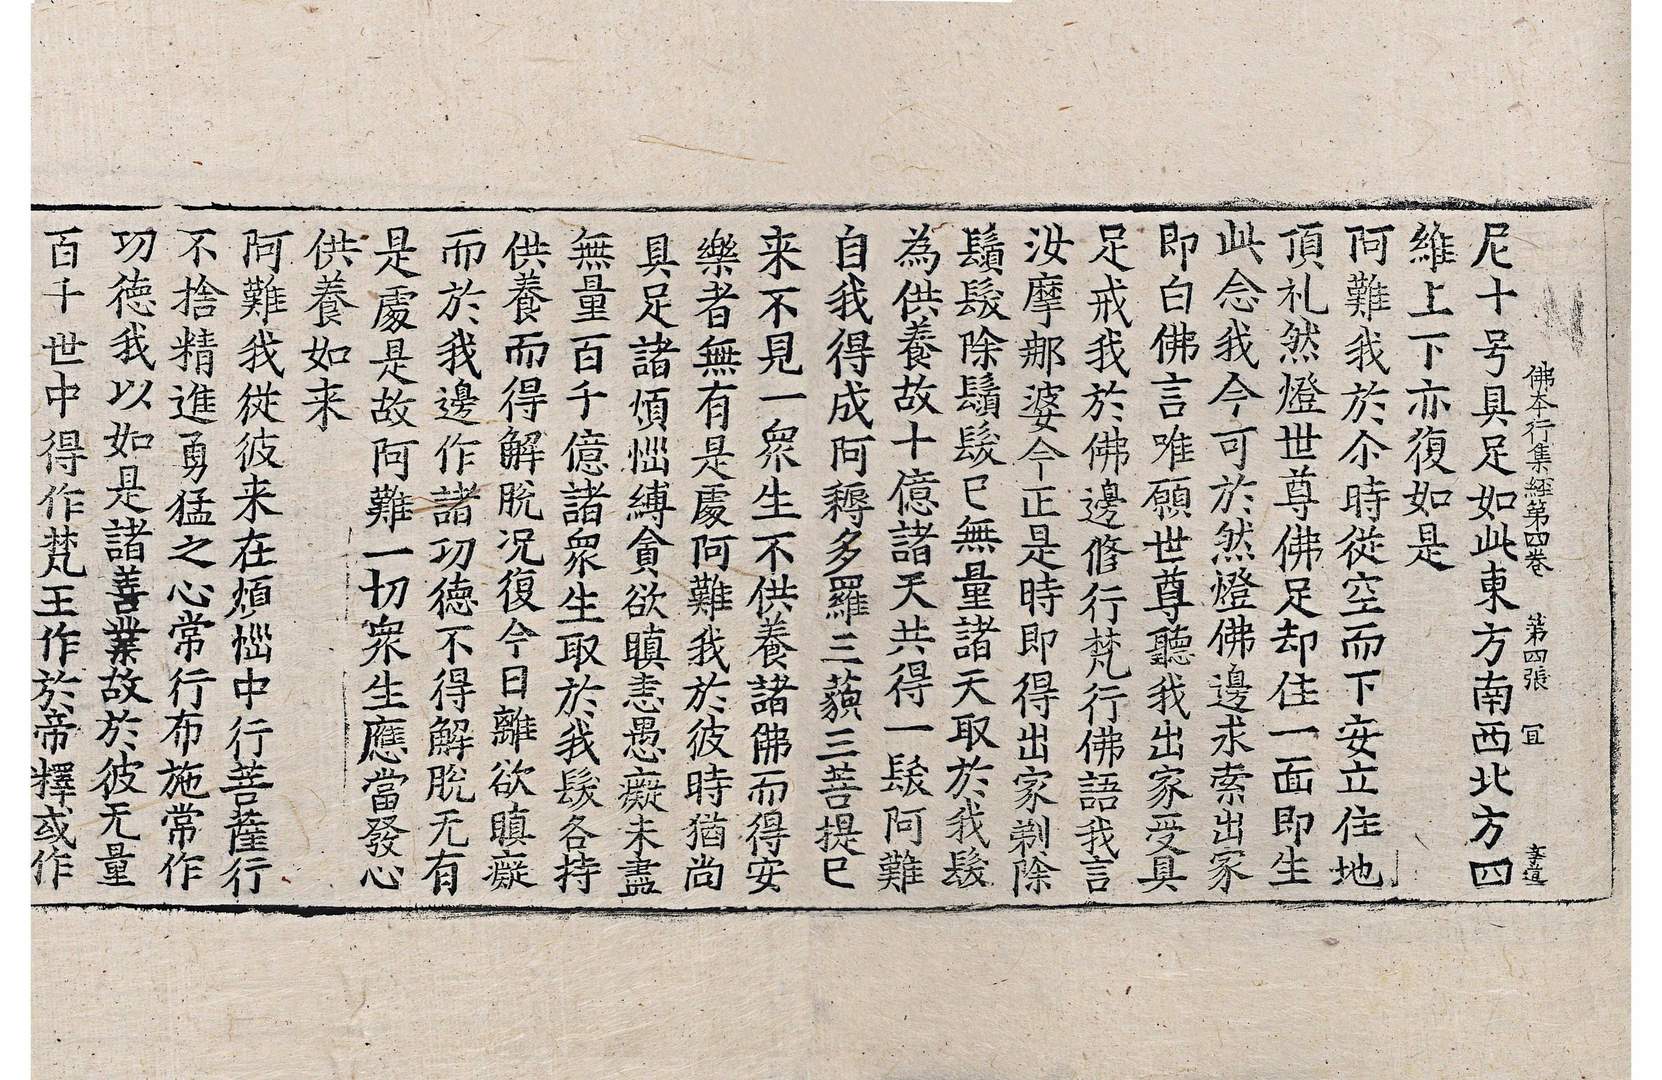 佛本行集經第四卷 第四張 冝 孝道
尼十号具足如此東方南西北方四
維上下亦復如是
阿難我於尒時從空而下安立住地
頂礼然燈世尊佛足却住一面即生
此念我今可於然燈佛邊求索出家
即白佛言唯願世尊聽我出家受具
足戒我於佛邊修行梵行佛語我言
汝摩郍婆今正是時即得出家剃除
鬚髮除鬚髮已無量諸天取於我髮
為供養故十億諸天共得一髮阿難
自我得成阿耨多羅三藐三菩提已
来不見一衆生不供養諸佛而得安
樂者無有是處阿難我於彼時猶尚
具足諸煩惱縛貪欲瞋恚愚癡未盡
無量百千億諸衆生取於我髮各持
供養而得解脫况復今日離欲瞋癡
而於我邊作諸功德不得解脫无有
是處是故阿難一切衆生應當發心
供養如来
阿難我從彼来在煩惱中行菩薩行
不捨精進勇猛之心常行布施常作
功德我以如是諸善業故於彼无量
百千世中得作梵王作於帝釋或作